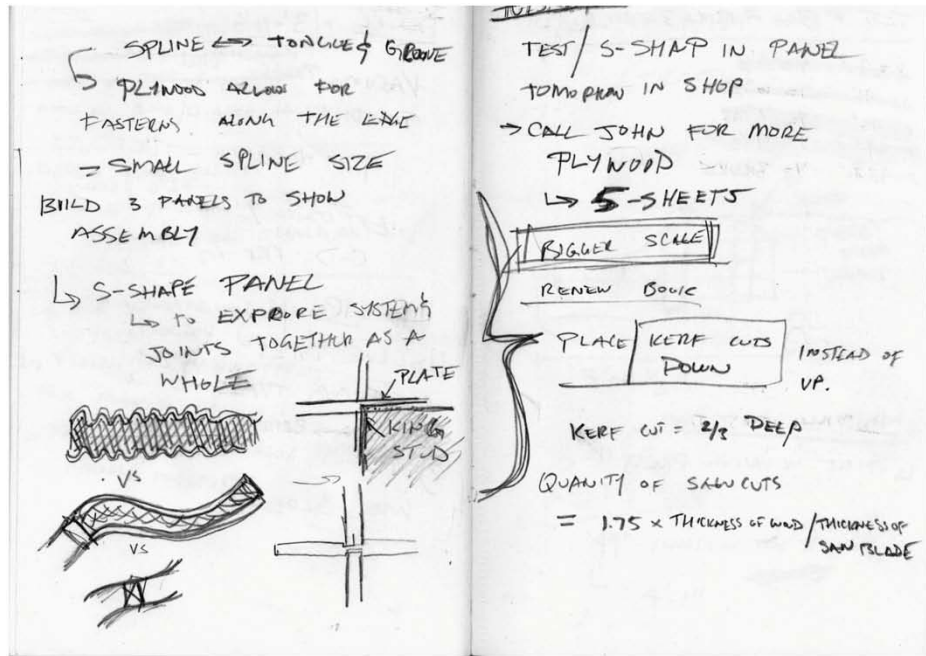 SPLINE ↔ TONGUE & GROOVE
↳ PLYWOOD ALLOW FOR
FASTERNS ALONG THE EDGE
- SMALL SPLINE SIZE
BUILD 3 PANELS TO SHOW
ASSEMBLY
↳ S-SHAPE PANEL
↳ TO EXPRORE SYSTEM &
JOINTS TOGETHER AS A
WHOLE
PLATE
KING
STUD
VS
VS
TEST / S-SHAP IN PANEL
TOMORROW IN SHOP
→ CALL JOHN FOR MORE
PLYWOOD
↳ 5-SHEETS
BIGGER SCALE
RENEW BOOK
PLACE KERF CUTS
DOWN
INSTEAD OF
UP.
KERF CUT = 2/3 DEEP
QUANITY OF SAW CUTS
= 1.75 x THICKNESS OF WOOD / THICKNESS OF
SAW BLADE